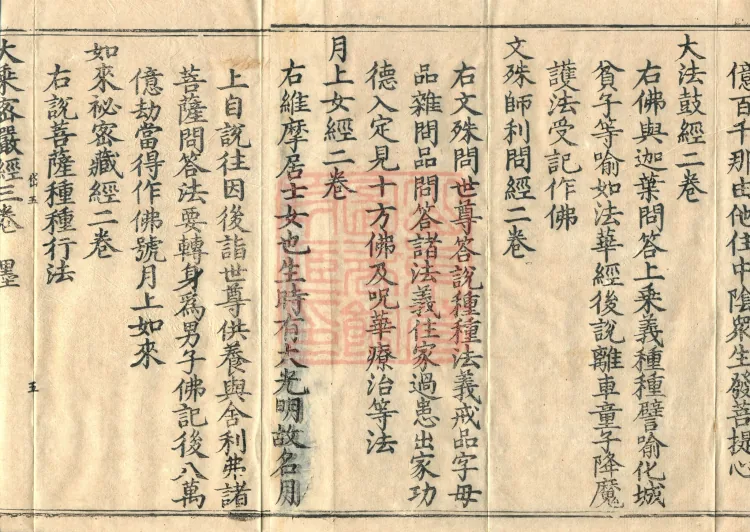 億百千那由他住中陰眾生發菩提心
大法鼓經二卷
右佛與迦葉問答上乘義種種譬喻化城
貧子等喻如法華經後說離車童子降魔
護法受記作佛
文殊師利問經二卷
右文殊問世尊答說種種法義戒品字母
品雜問品問答諸法義住家過患出家功
德入定見十方佛及呪華療治等法
月上女經二卷
右維摩居士女也生時有大光明故名月
上自說往因後詣世尊供養與舍利弗諸
菩薩問答法要轉身爲男子佛記後八萬
億劫當得作佛號月上如來
如來祕密藏經二卷
右說菩薩種種行法
岱五
五
大乘密嚴經三卷 墨